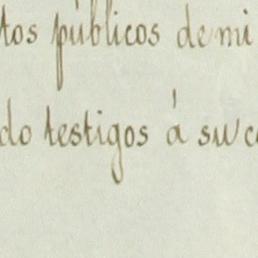 tos públicos de mi
do testigos á su c